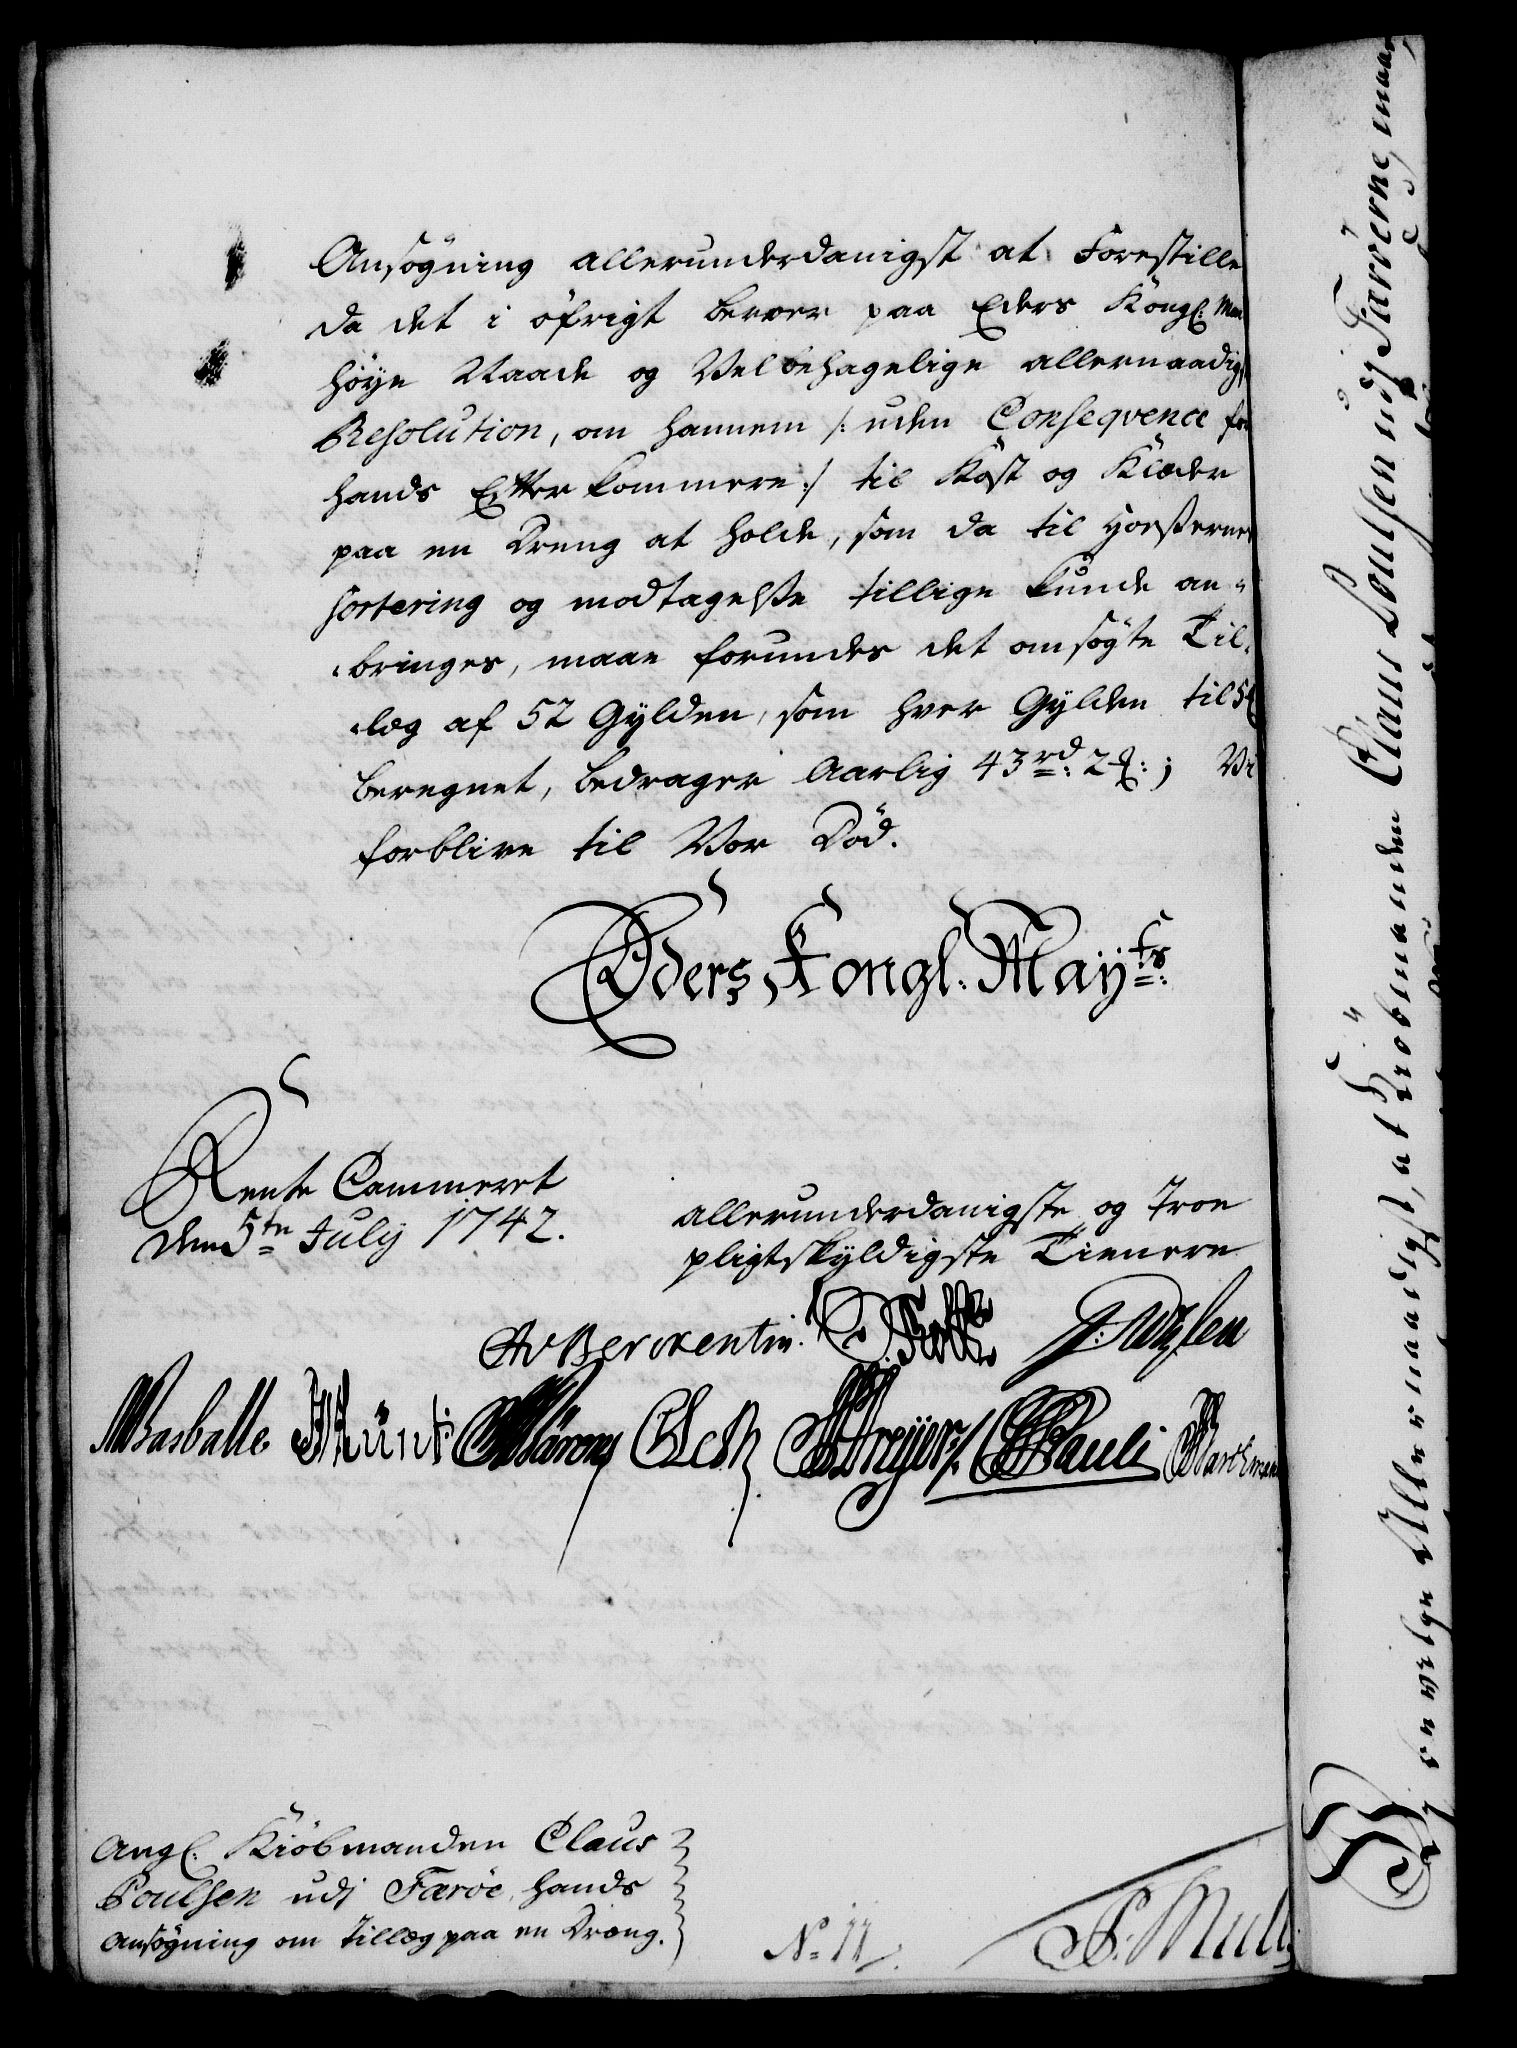 Ansøgning allerunderdanigst at Forestille
da det i øfrigt beroer paa Eders Kongl: May
høye Naade og Velbehagelige allernaadigst
Resolution, om hannem /: uden Conseqvence for
hands Efterkommere :/ til Kost og Klæder
paa en Dreng at holde, som da til Hoeßernes
sortering og modtagelße tillige kunde an-
bringes, maae forundes det omsøgte Til-
læg af 52 Gylden, som hver Gylden til
beregnet, bedrager Aarlig 43 rd: 2 ; Vi
forblive til Vor Död.
Eders Kongl. Mayts:
Rente Cammeret
den 5te July 1742.
allerunderdanigste og Troe
pligtskyldigste Tienere
AvBerckentin.
Basballe
CPauli
Ang: Kiöbmanden Claus
Poulsen udj Færöe, hands
ansögning om Tillæg paa en Dræng.
No 11
Vj en wilge Allernaadigst, at Kiöbmanden Claus Poulsen udj Færöerne, maae